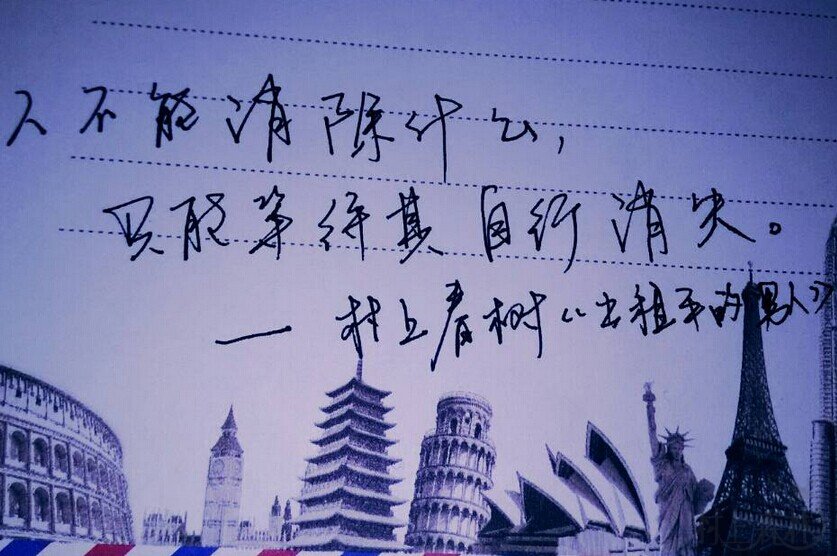 人不能消除什么，
只能等待其自行消失。
— 村上春树《出租车的男人》